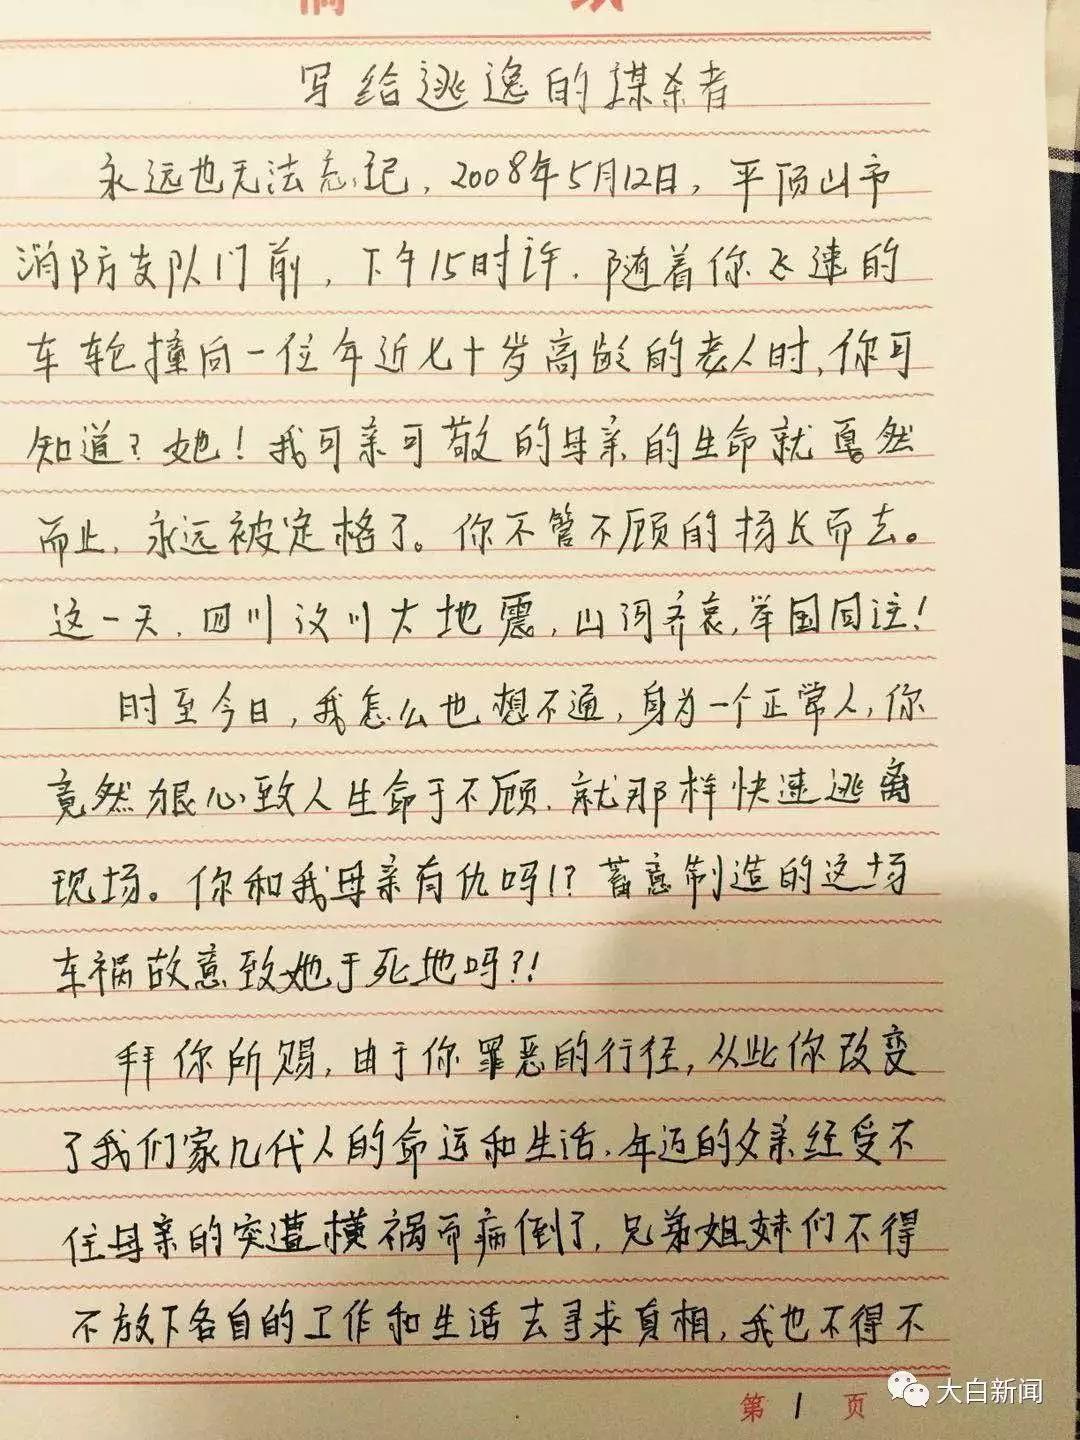 稿 纸
写给逃逸的谋杀者
永远也无法忘记，2008年5月12日，平顶山市
消防支队门前，下午15时许．随着你飞速的
车轮撞向一位年近七十岁高龄的老人时，你可
知道？她！我可亲可敬的母亲的生命就戛然
而止，永远被定格了。你不管不顾的扬长而去。
这一天，四川汶川大地震，山河齐哀，举国同泣！
时至今日，我怎么也想不通，身为一个正常人，你
竟然狠心致人生命于不顾，就那样快速逃离
现场。你和我母亲有仇吗！？蓄意制造的这场
车祸故意致她于死地吗？！
拜你所赐，由于你罪恶的行径，从此你改变
了我们家几代人的命运和生活．年迈的父亲经受不
住母亲的突遭横祸而病倒了，兄弟姐妹们不得
不放下各自的工作和生活去寻求真相，我也不得不
第 1 页
大白新闻